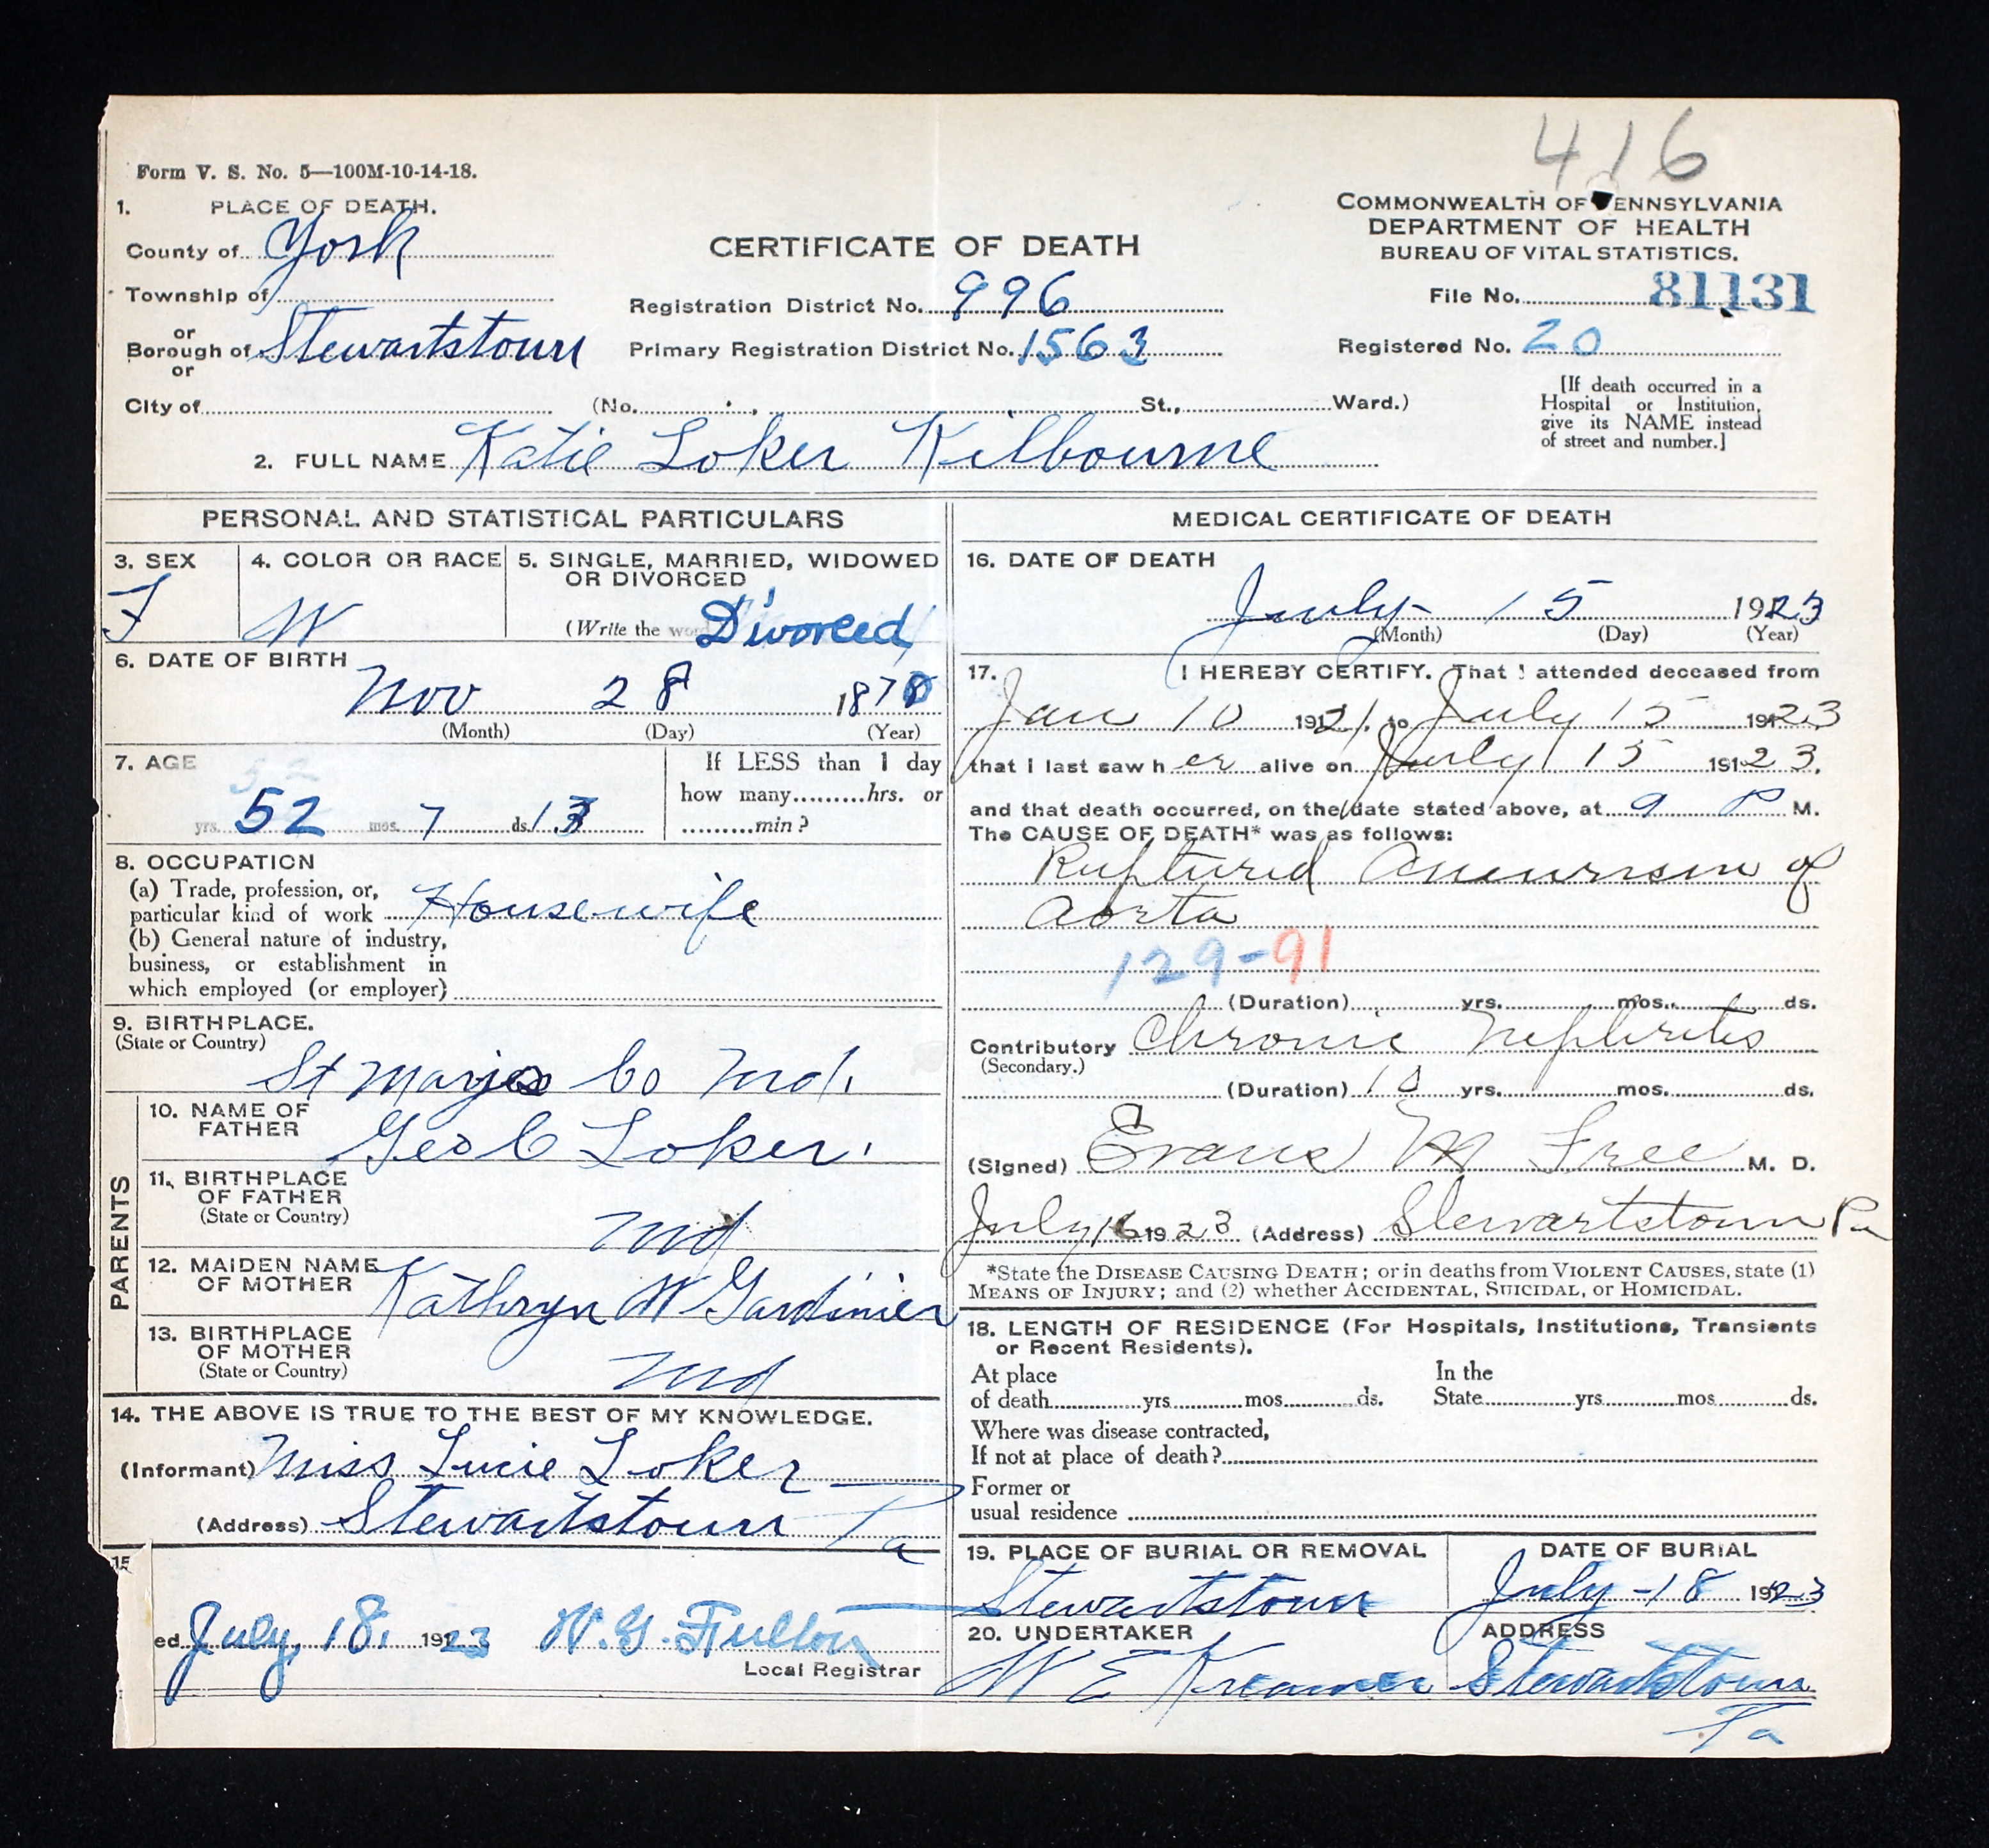 416
Form V. S. No. 5—100M-10-14-18.
1. PLACE OF DEATH.
County of York
Township of
or
Borough of Stewartstown
or
City of (No. St., Ward.)
CERTIFICATE OF DEATH
Registration District No. 996
Primary Registration District No. 1563
COMMONWEALTH OF PENNSYLVANIA
DEPARTMENT OF HEALTH
BUREAU OF VITAL STATISTICS.
File No. 81131
Registered No. 20
[If death occurred in a
Hospital or Institution,
give its NAME instead
of street and number.]
2. FULL NAME Katie Loker Kilbourne
PERSONAL AND STATISTICAL PARTICULARS
3. SEX
F
4. COLOR OR RACE
W
5. SINGLE, MARRIED, WIDOWED
OR DIVORCED
(Write the word Divorced
6. DATE OF BIRTH
Nov 28 1870
(Month) (Day) (Year)
7. AGE
52 yrs. 7 mos. 13 ds.
If LESS than 1 day
how many.........hrs. or
.........min?
8. OCCUPATION
(a) Trade, profession, or,
particular kind of work Housewife
(b) General nature of industry,
business, or establishment in
which employed (or employer)
9. BIRTHPLACE.
(State or Country)
St Marys Co Md.
PARENTS
10. NAME OF
FATHER
Geo C Loker.
11. BIRTHPLACE
OF FATHER
(State or Country)
Md
12. MAIDEN NAME
OF MOTHER
Kathryn W Gardinier
13. BIRTHPLACE
OF MOTHER
(State or Country)
Md
14. THE ABOVE IS TRUE TO THE BEST OF MY KNOWLEDGE.
(Informant) Miss Lucie Loker
(Address) Stewartstown Pa
15
ed July, 18, 1923 W. G. Fulton
Local Registrar
MEDICAL CERTIFICATE OF DEATH
16. DATE OF DEATH
July 15 1923
(Month) (Day) (Year)
17. I HEREBY CERTIFY. That I attended deceased from
Jan 10 1921, to July 15 1923
that I last saw her alive on July 15 1923,
and that death occurred, on the date stated above, at 9 P M.
The CAUSE OF DEATH* was as follows:
Ruptured Aneurism of
Aorta
129-91
(Duration) yrs. mos. ds.
Contributory Chronic Nephritis
(Secondary.)
(Duration) 10 yrs. mos. ds.
(Signed) Evans M Free M. D.
July 16 1923 (Address) Stewartstown Pa
*State the DISEASE CAUSING DEATH; or in deaths from VIOLENT CAUSES, state (1)
MEANS OF INJURY; and (2) whether ACCIDENTAL, SUICIDAL, or HOMICIDAL.
18. LENGTH OF RESIDENCE (For Hospitals, Institutions, Transients
or Recent Residents).
At place
of death yrs. mos. ds.
In the
State yrs. mos. ds.
Where was disease contracted,
If not at place of death?
Former or
usual residence
19. PLACE OF BURIAL OR REMOVAL
Stewartstown
DATE OF BURIAL
July - 18 1923
20. UNDERTAKER
W E Kreamer
ADDRESS
Stewartstown
Pa